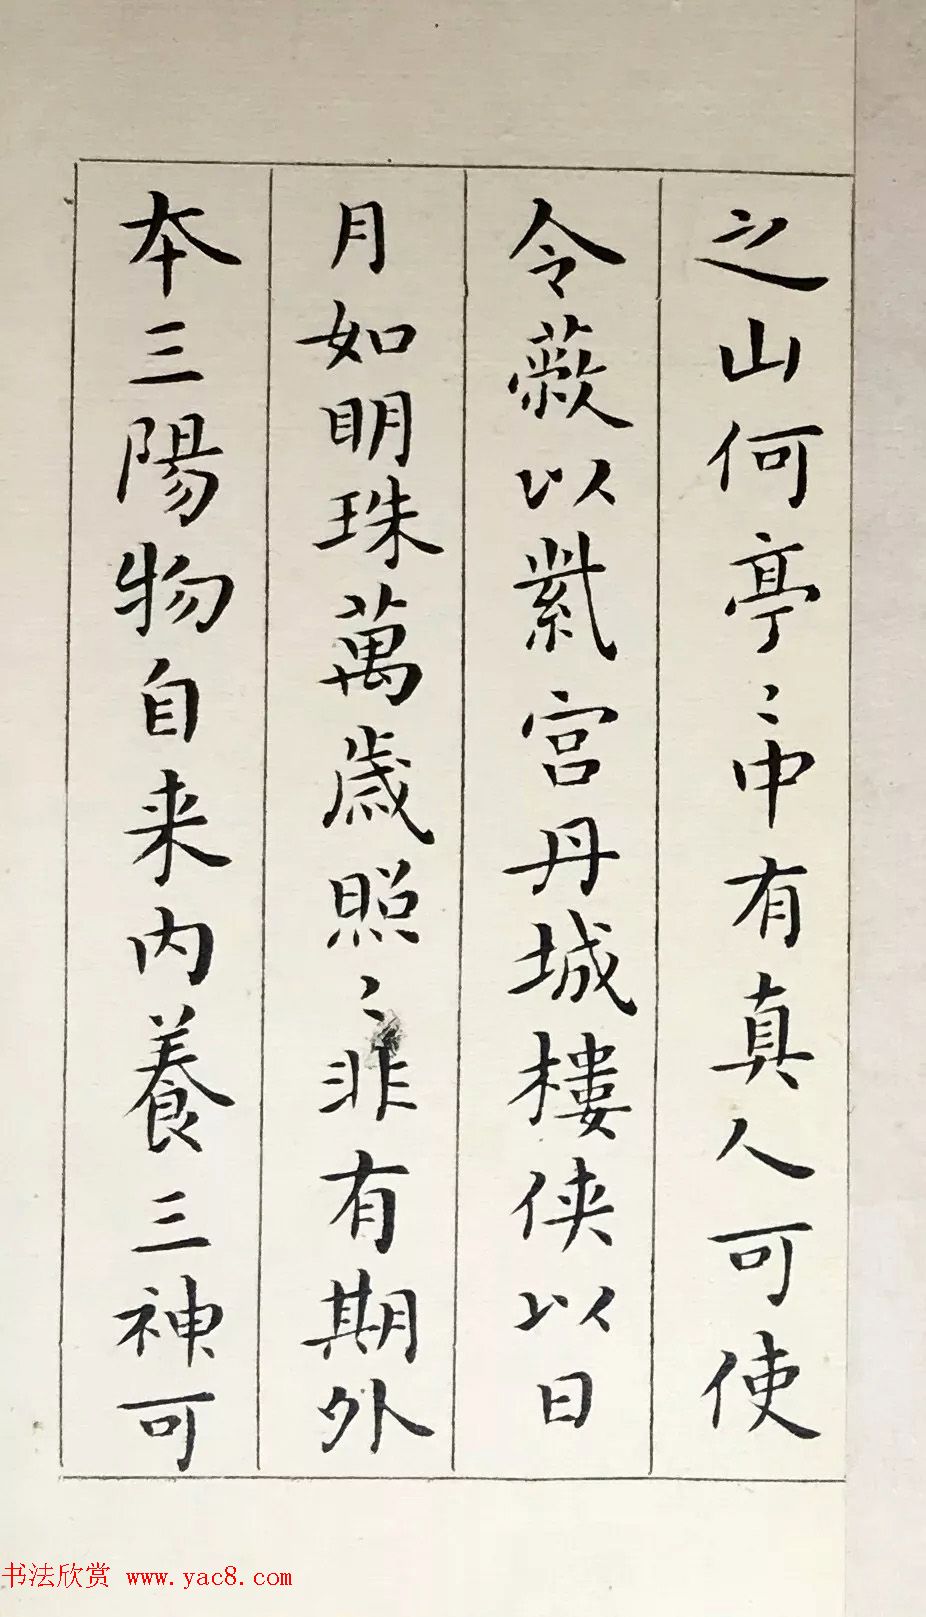 之山何亭〻中有真人可使
令蔽以紫宫丹城樓俠以日
月如明珠萬歲照〻非有期外
本三陽物自来内養三神可
书法欣赏 www.yac8.com